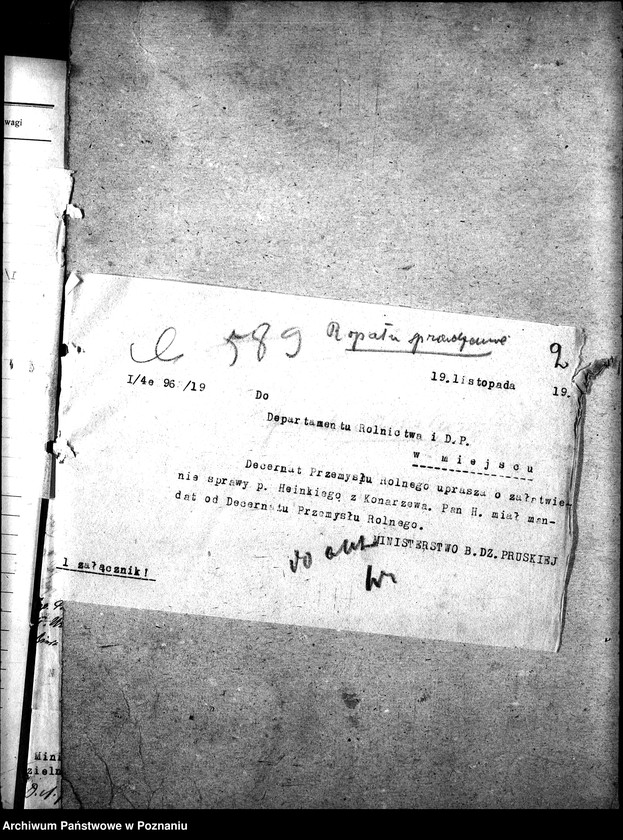 wagi
589
2
I/4e 96 /19
19.listopada 19.
Do
Departamentu Rolnictwa i D.P.
w miejscu
Decernat Przemysłu Rolnego uprasza o załatwie-
nie sprawy p. Heinkiego z Konarzewa. Pan H. miał man-
dat od Decernatu Przemysłu Rolnego.
MINISTERSTWO B.DZ.PRUSKIEJ
do akt
1 załącznik!
Min
zieln
Archiwum Państwowe w Poznaniu